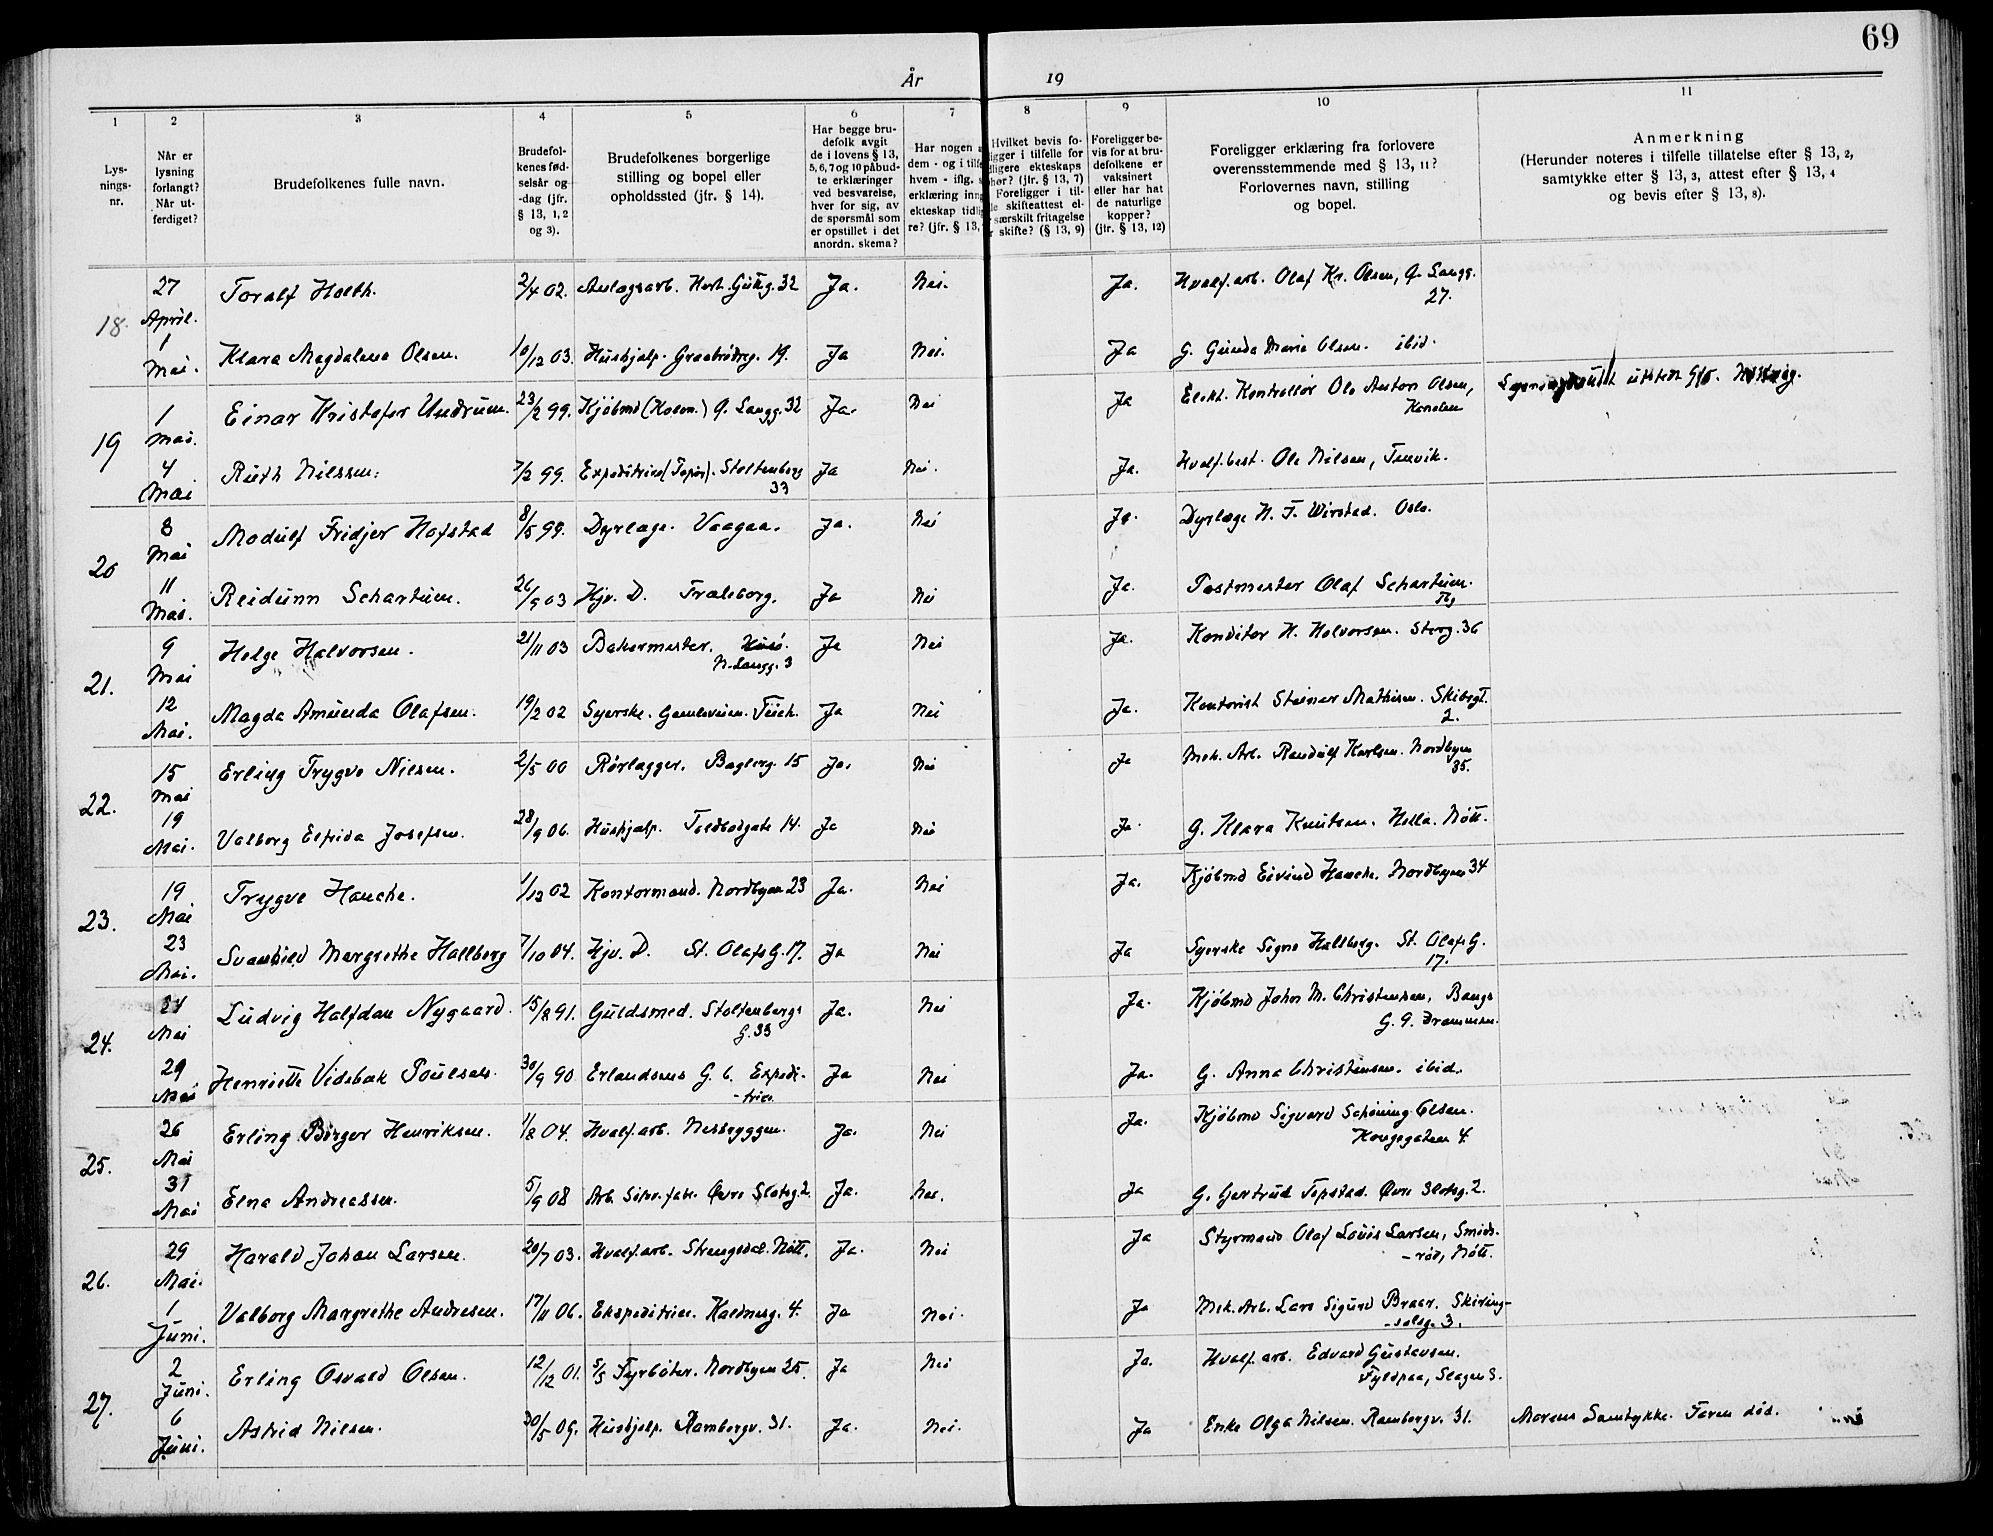 69
År 19
1 2 3 4 5 6 7 8 9 10 11
Lys-
nings-
nr.
Når er
lysning
forlangt?
Når ut-
ferdiget?
Brudefolkenes fulle navn.
Brudefol-
kenes fød-
selsår og
-dag (jfr.
§ 13, 1, 2
og 3).
Brudefolkenes borgerlige
stilling og bopel eller
opholdssted (jfr. § 14).
Har begge bru-
defolk avgit
de i lovens § 13,
5, 6, 7 og 10 påbud-
te erklæringer
ved besvarelse,
hver for sig, av
de spørsmål som
er opstillet i det
anordn. skema?
Har nogen
dem - og i tilfe
hvem - iflg.
erklæring inn
ekteskap tidli
re? (jfr. § 13,
Hvilket bevis fo-
ligger i tilfelle for
dligere ekteskaps
phør? (jfr. § 13, 7)
Foreligger i til-
le skifteattest el-
særskilt fritagelse
r skifte? (§ 13, 9)
Foreligger be-
vis for at bru-
defolkene er
vaksinert
eller har hat
de naturlige
kopper?
(jfr. § 13, 12)
Foreligger erklæring fra forlovere
overensstemmende med § 13, 11?
Forlovernes navn, stilling
og bopel.
Anmerkning
(Herunder noteres i tilfelle tillatelse efter § 13, 2,
samtykke efter § 13, 3, attest efter § 13, 4
og bevis efter § 13, 8).
18. 27 April. Toralf Holth. 2/4 02. Anlagsarb. Hert. Gutt.g. 32 Ja. Nei. Ja. Hvalf.arb. Olaf Kr. Olsen, G. Langg.
27.
1 Mai. Klara Magdalena Olsen. 10/12 03. Hushjalp. Graabrødreg. 19. Ja Nei. Ja G. Gunda Marie Olsen. ibid.
19 1 Mai. Einar Kristofer Undrum. 23/2 99. Kjøbmd (Kolon.) G. Langg. 32 Ja. Nei Ja Elekt. Kontrollør Ole Anton Olsen,
4 Mai Ruth Nilssen. 7/2 99. Expeditrice (Papir). Stoltenberg Ja Nei. Ja. Hvalf.best. Ole Nilsen, Tenvik.
33
20 8 Mai Modulf Fridjer Hofstad 8/5 99. Dyrlæge. Vaagaa. Ja. Nei Ja. Dyrlæge N. F. Wirstad. Oslo.
11 Mai. Reidunn Schartum. 26/9 03 Hjv. D. Fralsborg. Ja Nei Ja. Postmester Olaf Schartum.
Tbg
21. 9 Mai Helge Halvorsen. 21/11 03 Bakermester. Ja Nei Ja. Konditor H. Halvorsen. Storg. 36
N. Langg. 3
12 Mai. Magda Amunda Olafsen. 19/2 02 Syerske. Gamleveien. Ja Nei Ja. Kontorist Steinar Mathisen. Skibsgt.
2.
22. 15 Mai Erling Trygve Nilsen. 2/5 00 Rørlægger. Baglerg. 15 Ja. Nei Ja Mek. Arb. Randulf Karlsen. Nordbyen
35.
19 Mai. Valborg Elfrida Josefsen. 28/9 06. Hushjalp. Toldbodgate 14. Ja Nei Ja. G. Klara Knutsen. Hella. Nøtt.
23. 19 Mai Trygve Hanche. 1/12 02 Kontormand. Nordbyen 23 Ja. Nei Ja. Kjøbmd Eivind Hanche. Nordbyen 34
23 Mai. Svanhild Margrethe Hallberg 7/10 04. Hjv. D. St. Olafs G. 17. Ja Nei Ja Syerske Signe Hallberg. St. Olafs G.
17.
24. Mai Ludvig Halfdan Nygaard. 15/8 91. Guldsmed. Stoltenbergs Ja. Nei Ja. Kjøbmd Johs M. Christensen, Bangs
G. 33 G. 9. Drammen.
29 Mai Henriette Videbæk Poulsen. 30/9 90 Erlandsens G. 6. Expedi- Ja Nei Ja. G. Anna Christensen. ibid.
-trice
25. 26 Mai Erling Birger Henriksen. 1/8 04. Hvalf.arb. Nesbryggen. Ja. Nei Ja. Kjøbmd Sigvard Schøning Olsen.
Kongsgaten 4.
31 Mai Elna Andreassen. 5/9 08 Arb. Silov.fabr. Øvre Slotsg. 2. Ja. Nei. Ja G. Gertrud Topstad. Øvre Slotsg. 2.
26. 29 Mai. Harald Johan Larsen. 20/7 03. Hvalf.arb. Strengsdal. Nøtt. Ja. Nei Ja Styrmand Olaf Louis Larsen, Smids-
-rød, Nøtt.
1 Juni. Valborg Margrethe Andresen. 17/11 06. Ekspeditrice. Kaldnesg. 4. Ja Nei. Ja Mek. Arb. Lars Sigurd Braar. Skiring-
-salsg. 3.
27. 2 Juni. Erling Osvald Olsen. 12/12 01. s/s Fyrbøter. Nordbyen 25. Ja Nei Ja. Hvalf. arb. Edvard Gustavsen.
Fyldpaa, Slagen S.
6 Juni. Astrid Nilsen. 30/5 09. Hushjelp. Rambergv. 31. Ja. Nei. Ja Enke Olga Nilsen. Rambergv. 31. Morens Samtykke. Faren død.